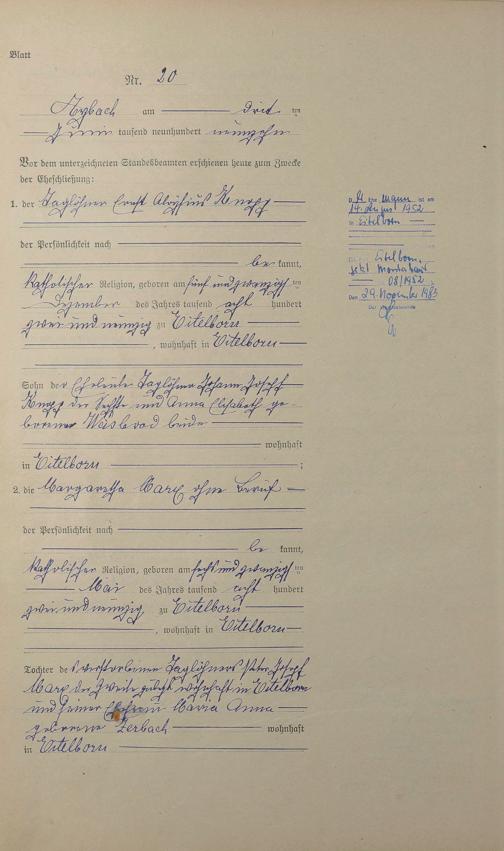 Blatt
Nr. 20
Arzbach am drit ten
Juni tausend neunhundert neunzehn
Vor dem unterzeichneten Standesbeamten erschienen heute zum Zwecke
der Eheschließung:
1. der Taglöhner Ernst Aloysius Knopp
der Persönlichkeit nach
be kannt,
katholischer Religion, geboren am fünfundzwanzig ten
Dezember des Jahres tausend acht hundert
zweiundneunzig zu Eitelborn
, wohnhaft in Eitelborn
Sohn der Eheleute Taglöhner Johann Josef
Knopp der Sechste und Anna Elisabeth ge-
borene beide
wohnhaft
in Eitelborn ;
2. die Margaretha Marx ohne Beruf
der Persönlichkeit nach
be kannt,
katholischer Religion, geboren am sechsundzwanzig ten
Mai des Jahres tausend acht hundert
zweiundneunzig zu Eitelborn
, wohnhaft in Eitelborn
Tochter des verstorbenen Taglöhners Peter Josef
Marx der Zweite zuletzt wohnhaft in Eitelborn
und seiner Ehefrau Maria Anna
geborene Zerbach wohnhaft
in Eitelborn
Mann
14. 1952
in Eitelborn
Eitelborn,
jetzt Montabaur
08/1952
Den 29. November 1983